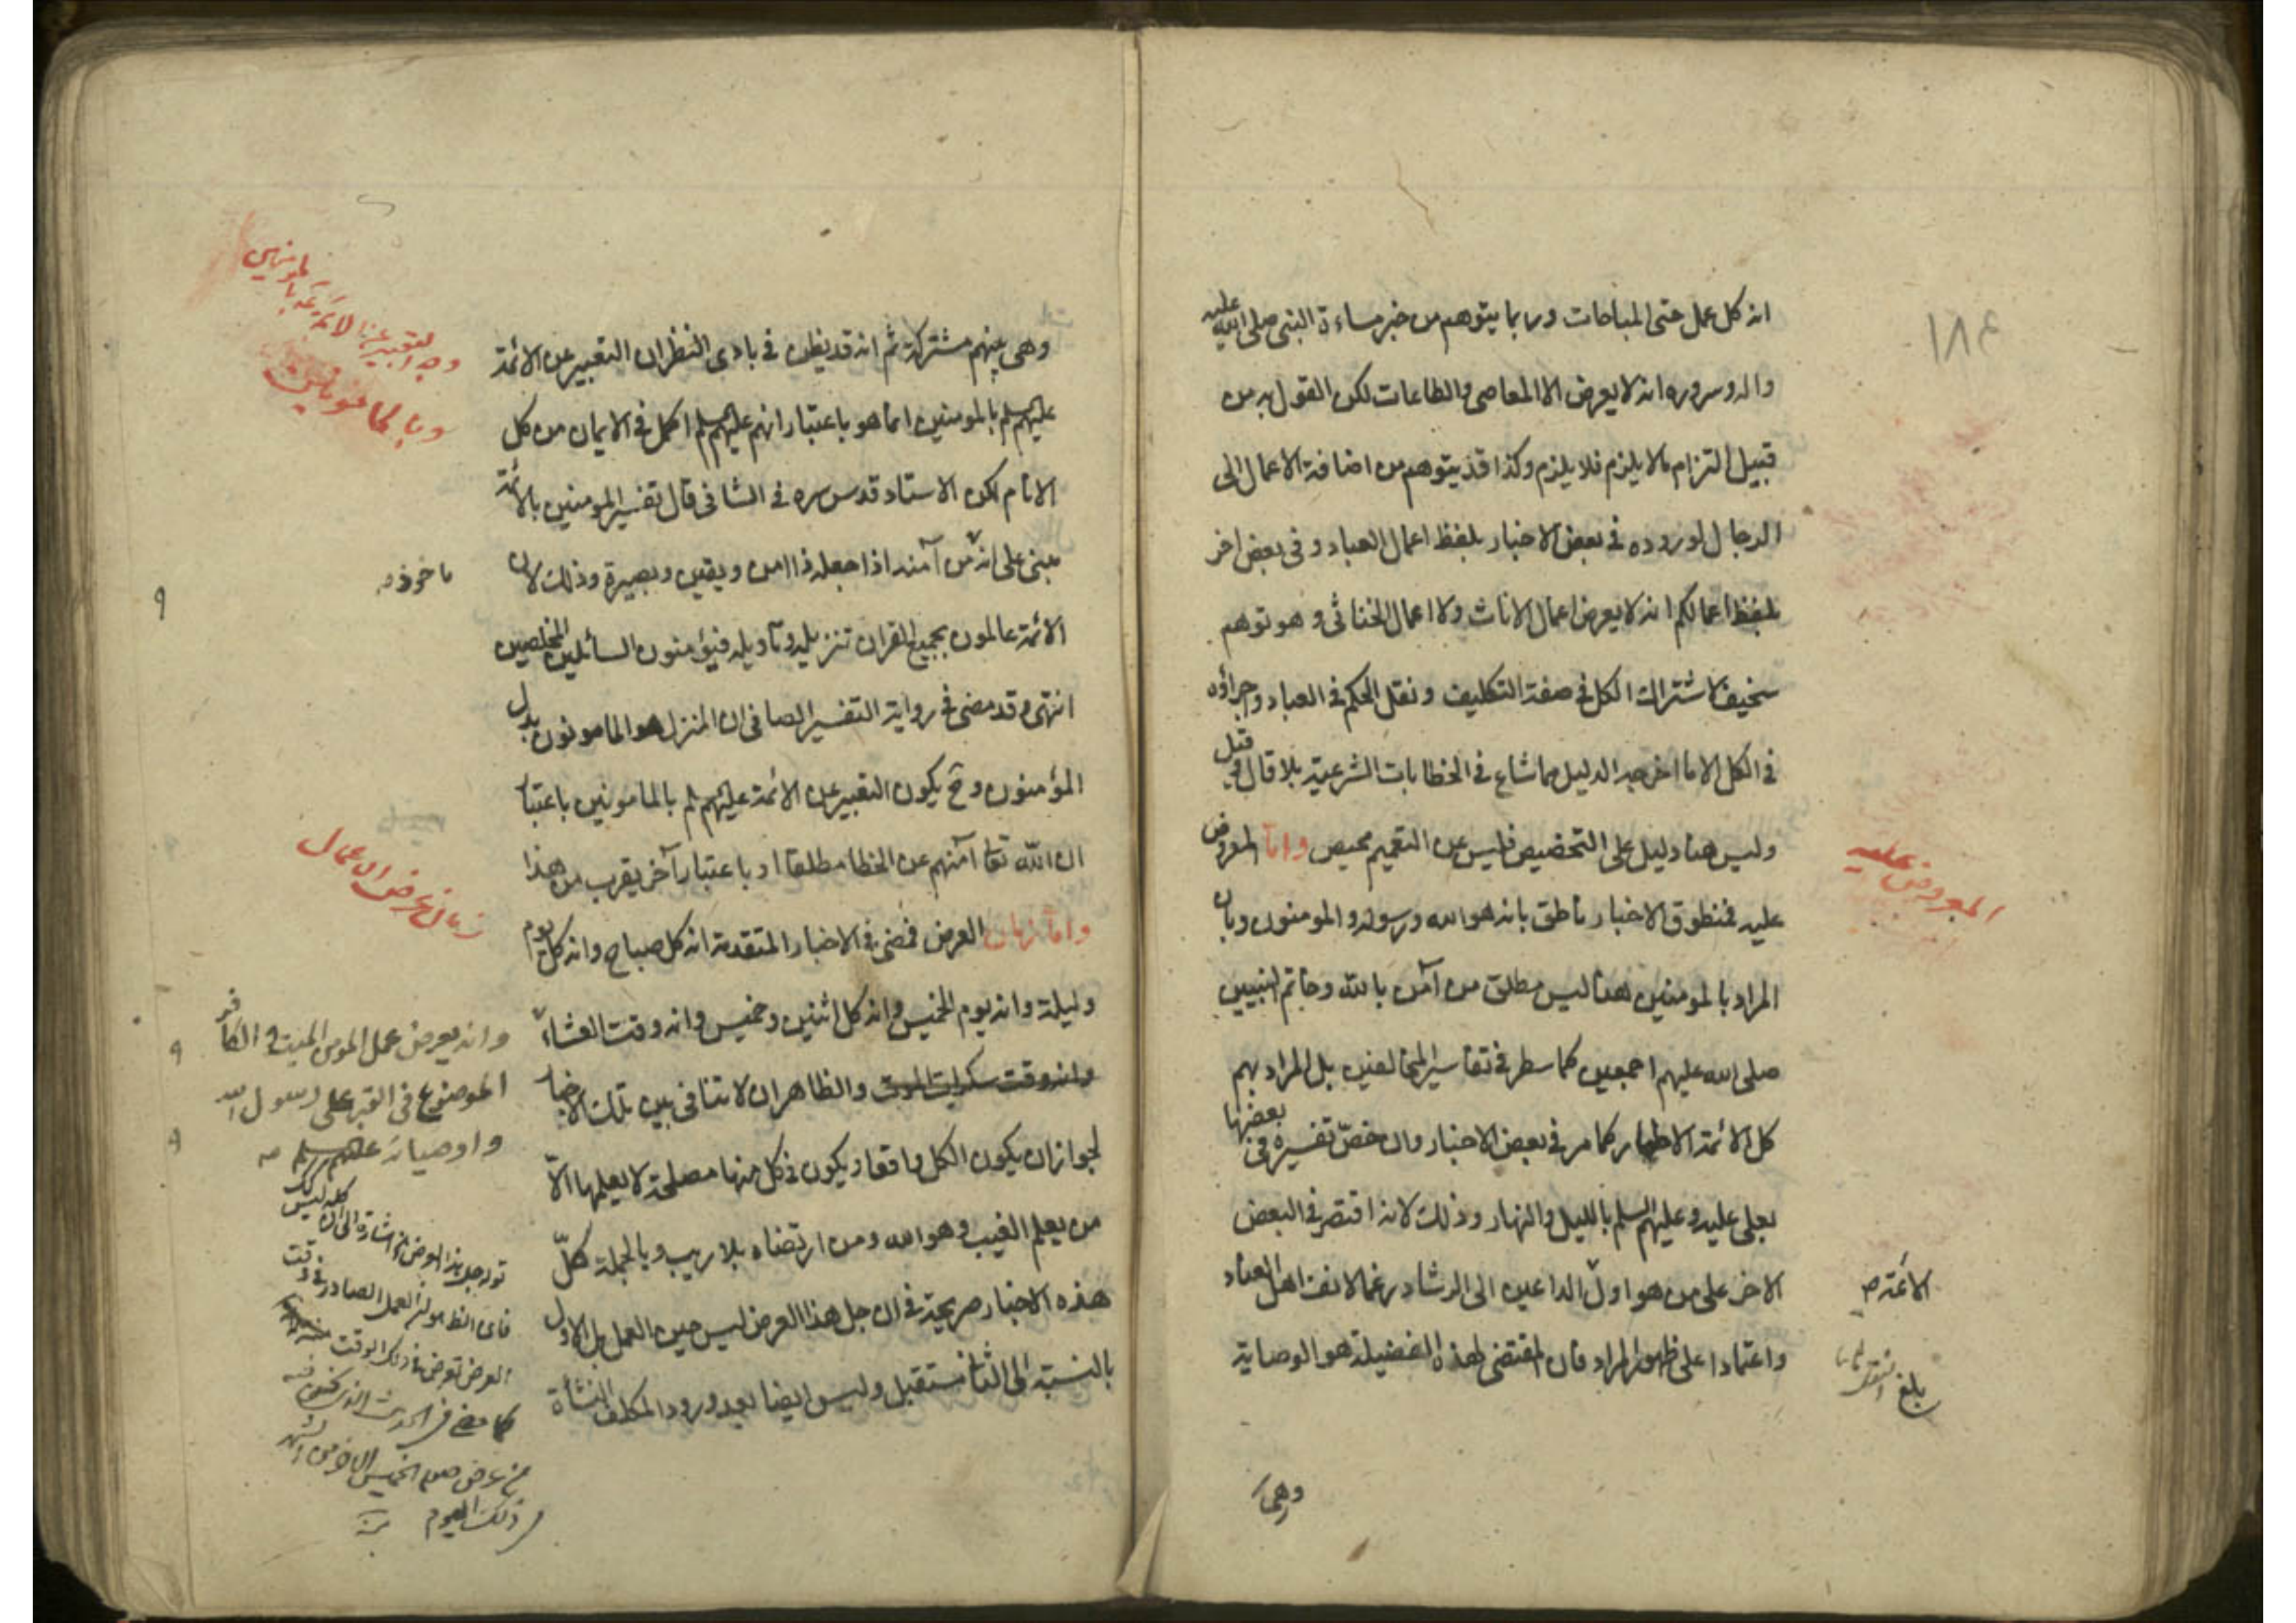 ١٨٤
انه كل عمل حتى المباحات وربما يتوهم من خبر مساءة النبى صلى الله عليه
واله وسروره انه لا يعرض الا المعاصى والطاعات لكن القول به من
قبيل التزام مالا يلزم فلا يلزم وكذا قد يتوهم من اضافة الاعمال الى
الرجال لوروده فى بعض الاخبار بلفظ اعمال العباد وفى بعض اخر
بلفظ اعمالكم انه لا يعرض اعمال الاناث ولا اعمال الخناثى وهو توهم
سخيف لاشتراك الكل فى صفة التكليف ونقل الحكم فى العباد واجراؤه
فى الكل الا ما اخرجه الدليل مما شاع فى الخطابات الشرعية بلا قال وقيل
وليس هنا دليل على التخصيص فليس عن التعميم محيص واما المعروض
عليه فمنطوق الاخبار ناطق بانه هو الله ورسوله والمومنون وبان
المراد بالمومنين هنا ليس مطلق من آمن بالله وخاتم النبيين
صلى الله عليهم اجمعين كما سطر فى تفاسير المخالفين بل المراد بهم
كل الائمة الاطهار كما مر فى بعض الاخبار وان خصّ تفسيره فى بعضها
بعلى عليه وعليهم السلم بالليل والنهار وذلك لانه اقتصر فى البعض
الاخر على من هو اول الداعين الى الرشاد رغما لانف اهل العناد
واعتمادا على ظهور المراد فان المقتضى لهذه الفضيلة هو الوصاية
وهى
المعروض عليه
الائمة
بلغ
وهى بينهم مشتركة ثم انه قد يظن فى بادى النظر ان التعبير عن الائمة
عليهم سلم بالمومنين انما هو باعتبار انهم عليهم سلم اكمل فى الايمان من كل
الانام لكن الاستاد قدس سره فى الشافى قال تفسير المومنين بالائمة
مبنى على انه من آمنه اذا جعله ذا امن ويقين وبصيرة وذلك لان
الائمة عالمون بجميع القران تنزيله وتاويله فيؤمنون السائلين المخلصين
انتهى وقد مضى فى رواية التفسير الصافى ان المنزل هو المامونون بدل
المؤمنون وح يكون التعبير عن الائمة عليهم سلم بالمامونين باعتبار
ان الله تعا آمنهم عن الخطا مطلقا او باعتبار آخر يقرب من هذا
واما زمان العرض فمضى فى الاخبار المتقدمة انه كل صباح وانه كل يوم
وليلة وانه يوم الخميس وانه كل اثنين وخميس وانه وقت العشاء
وانه وقت سكرات الموت والظاهر ان لا تنافى بين تلك الاخبار
لجواز ان يكون الكل واقعا ويكون فى كل منها مصلحة لا يعلمها الّا
من يعلم الغيب وهو الله ومن ارتضاه بلا ريب وبالجملة كلّ
هذه الاخبار صريحة فى ان جل هذا العرض ليس حين العمل بل الاول
بالنسبة الى الثانى مستقبل وليس ايضا بعد ورود المكلف النشأة
وجه التعبير عن الائمة بالمومنين
وبالمامونين
ماخوذ
زمان عرض الاعمال
وانه يعرض عمل المومن الميت والكافر
الموضوع فى القبر على رسول الله
واوصيائه عليهم السلم
قوله جل هذا العرض اشارة الى ان كله ليس كذلك
فان الظ هو ان العمل الصادر فى وقت
العرض يعرض فى ذلك الوقت
كما مضى فى الحديث
من عرض صوم الخميس الاخر من الشهر
فى ذلك اليوم منه